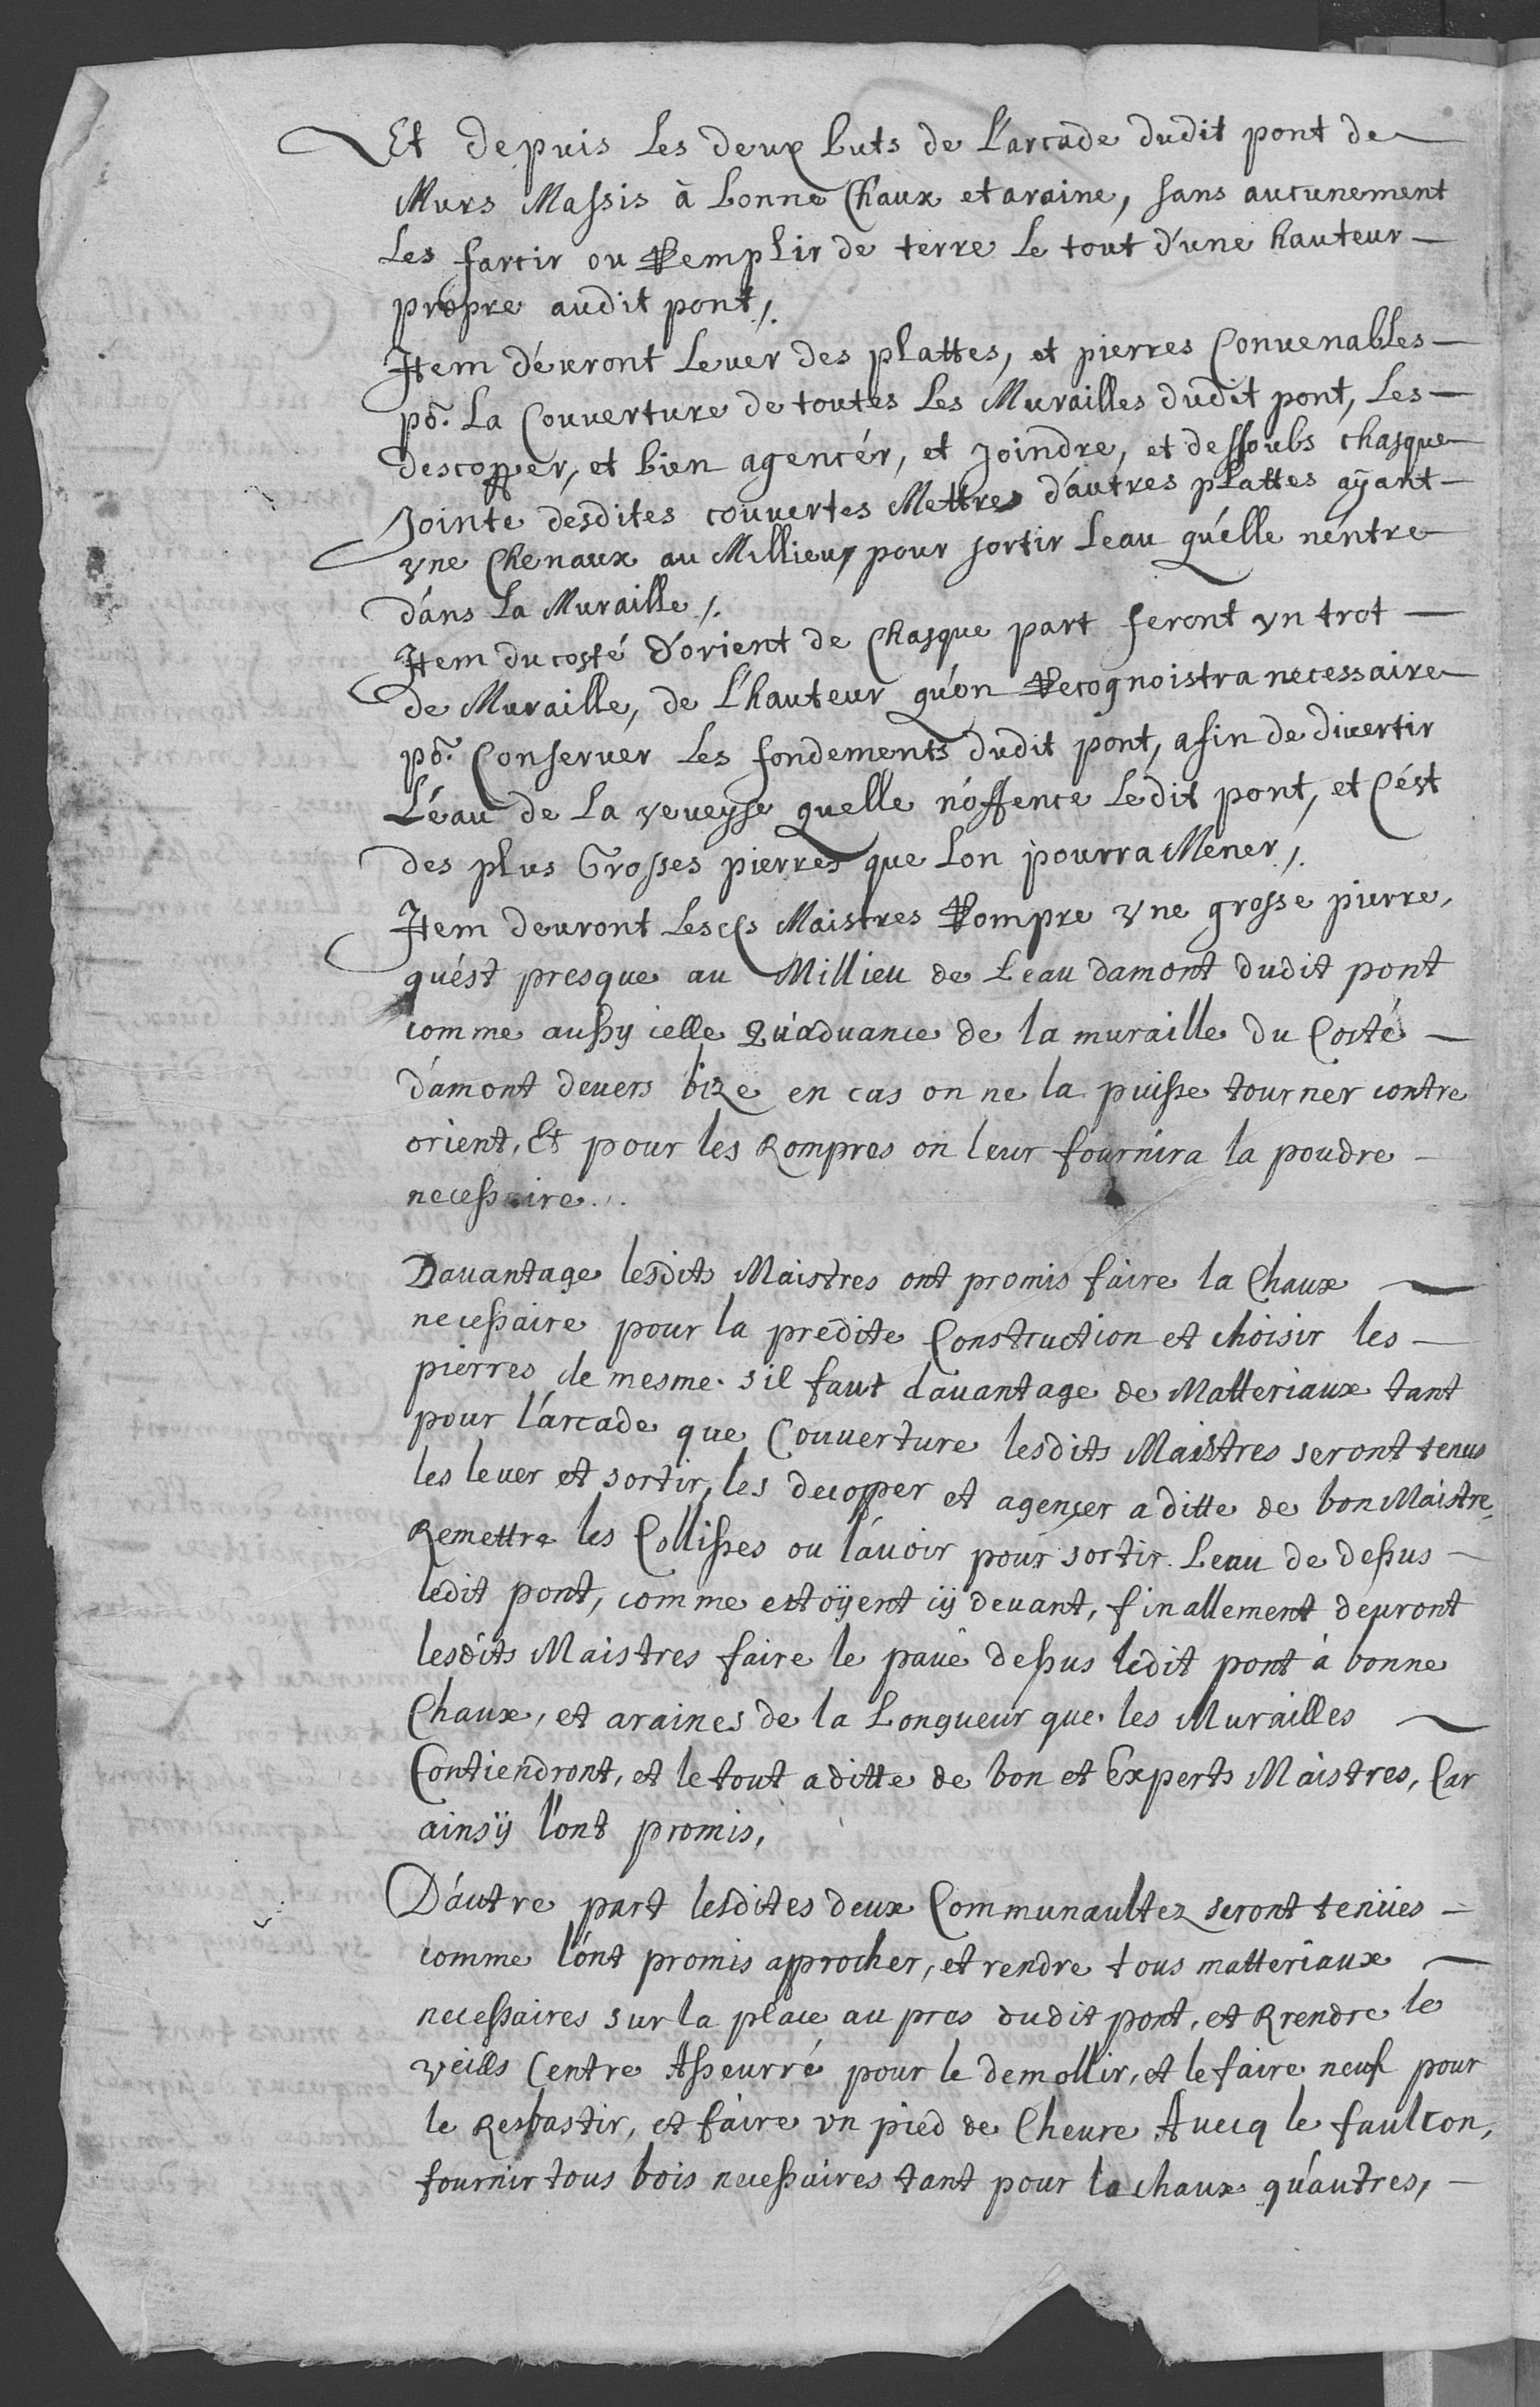 Et depuis les deux buts de l'arcade dudit pont de
Murs Massis à bonne Chaux et araine, sans aucunement
les farcir ou Remplir de terre le tout d'une hauteur
propre audit pont /.
Item dévront lever des plattes, et pierres Convenables
po.ʳ La Couverture de toutes les Murailles dudit pont, les
descopper, et bien agencér, et joindre, et dessoubs chasque
Jointe désdites couvertes Mettre d'autres plattes aÿant
vne Chenaux au Millieu, pour sortir L'eau qu'elle n'entre
dans la Muraille /.
Item du costé d'orient de Chasque part feront vn trot
de Muraille, de l'hauteur qu'on Recognoistra necessaire
po.ʳ Conserver les fondements dudit pont, afin de divertir
L'éau de la veveyse quelle n'offence ledit pont, et C'ést
des plus Grosses pierres que lon pourra Mener /.
Item devront lesds Maistres Rompre vne grosse pierre,
qu'ést presque au Millieu de L'eau damont dudit pont
comme aussy celle Qu'aduance de la muraille du Costé
d'amont deuers bize en cas on ne la puisse tourner contre
orient, Et pour les Rompres on leur fournira la poudre
necessaire.
Dauantage lesdits Maistres ont promis faire la Chaux
necessaire pour la predite Construction et choisir les
pierres de mesme. s'il faut dauantage de Matteriaux tant
pour l'arcade que Couverture lesdits Maistres seront tenus
les lever et sortir, les decopper et agençer a ditte de bon Maistre,
Remettre les Collisses ou l'auoir pour sortir L'eau de dessus
ledit pont, comme estoÿent cÿ deuant, finallement deuront
lesdits Maistres faire le paué dessus ledit pont à bonne
Chaux, et araines de la Longueur que les Murailles
Contiendront, et le tout a ditte de bon et Experts Maistres, Car
ainsÿ l'ont promis,
D'autre part lesdites deux Communaultez seront tenües
comme l'ónt promis approcher, et rendre tous matteriaux
necessaires sur la place au pres dudit pont, et Rrendre le
veills Centre Asseurré pour le demollir, et le faire neuf pour
le Resbastir, et faire vn pied de Cheure Auecq le faulcon,
fournir tous bois necessaires tant pour la chaux qu'autres,